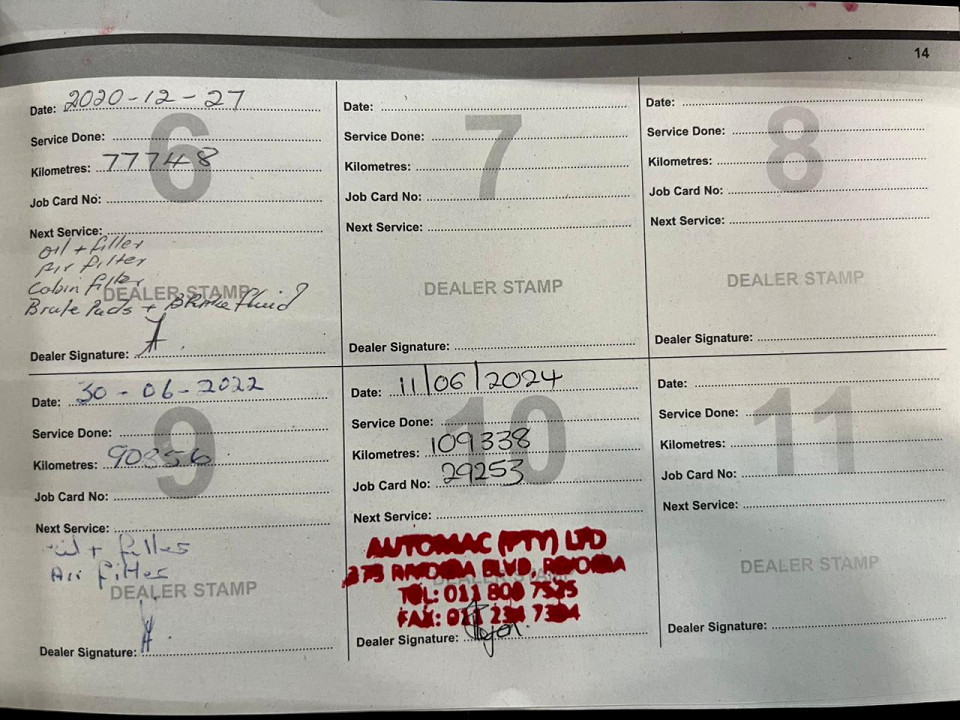 14
Date: 2020-12-27
Service Done:
6
Kilometres: 77748
Job Card No:
Next Service:
oil + filter
Air filter
Cabin filter
Brake Pads + BRake fluid
DEALER STAMP
Dealer Signature:
Date:
Service Done:
7
Kilometres:
Job Card No:
Next Service:
DEALER STAMP
Dealer Signature:
Date:
Service Done:
8
Kilometres:
Job Card No:
Next Service:
DEALER STAMP
Dealer Signature:
Date: 30-06-2022
Service Done:
9
Kilometres:
Job Card No:
Next Service:
oil + filter
Air filter
DEALER STAMP
Dealer Signature:
Date: 11/06/2024
Service Done:
10
Kilometres: 109338
Job Card No: 29253
Next Service:
AUTOMAC (PTY) LTD
273 RIVONIA BLVD, RIVONIA
TEL: 011 803
FAX: 011 234
DEALER STAMP
Dealer Signature:
Date:
Service Done:
11
Kilometres:
Job Card No:
Next Service:
DEALER STAMP
Dealer Signature: